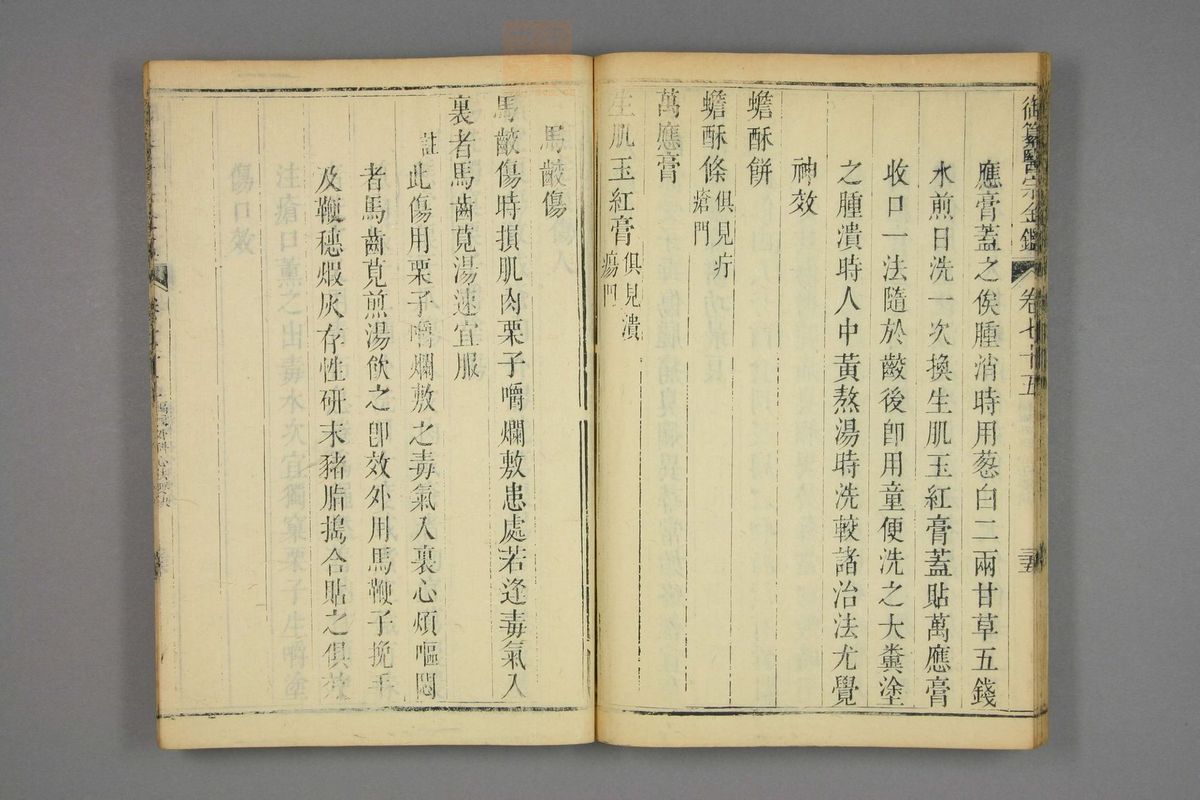 御纂醫宗金鑑 卷七十五 三五
應膏蓋之俟腫消時用葱白二兩甘草五錢
水煎日洗一次換生肌玉紅膏蓋貼萬應膏
收口一法隨於齩後卽用童便洗之大糞塗
之腫潰時人中黃熬湯時洗較諸治法尤覺
神效
蟾酥餅
蟾酥條俱見疔
瘡門
萬應膏
生肌玉紅膏俱見潰
瘍門
馬齩傷
馬齩傷時損肌肉栗子嚼爛敷患處若逢毒氣入
裏者馬齒莧湯速宜服
註此傷用栗子嚼爛敷之毒氣入裏心煩嘔悶
者馬齒莧煎湯飲之卽效外用馬鞭子挽手
及鞭穗煆灰存性研末猪脂搗合貼之俱效